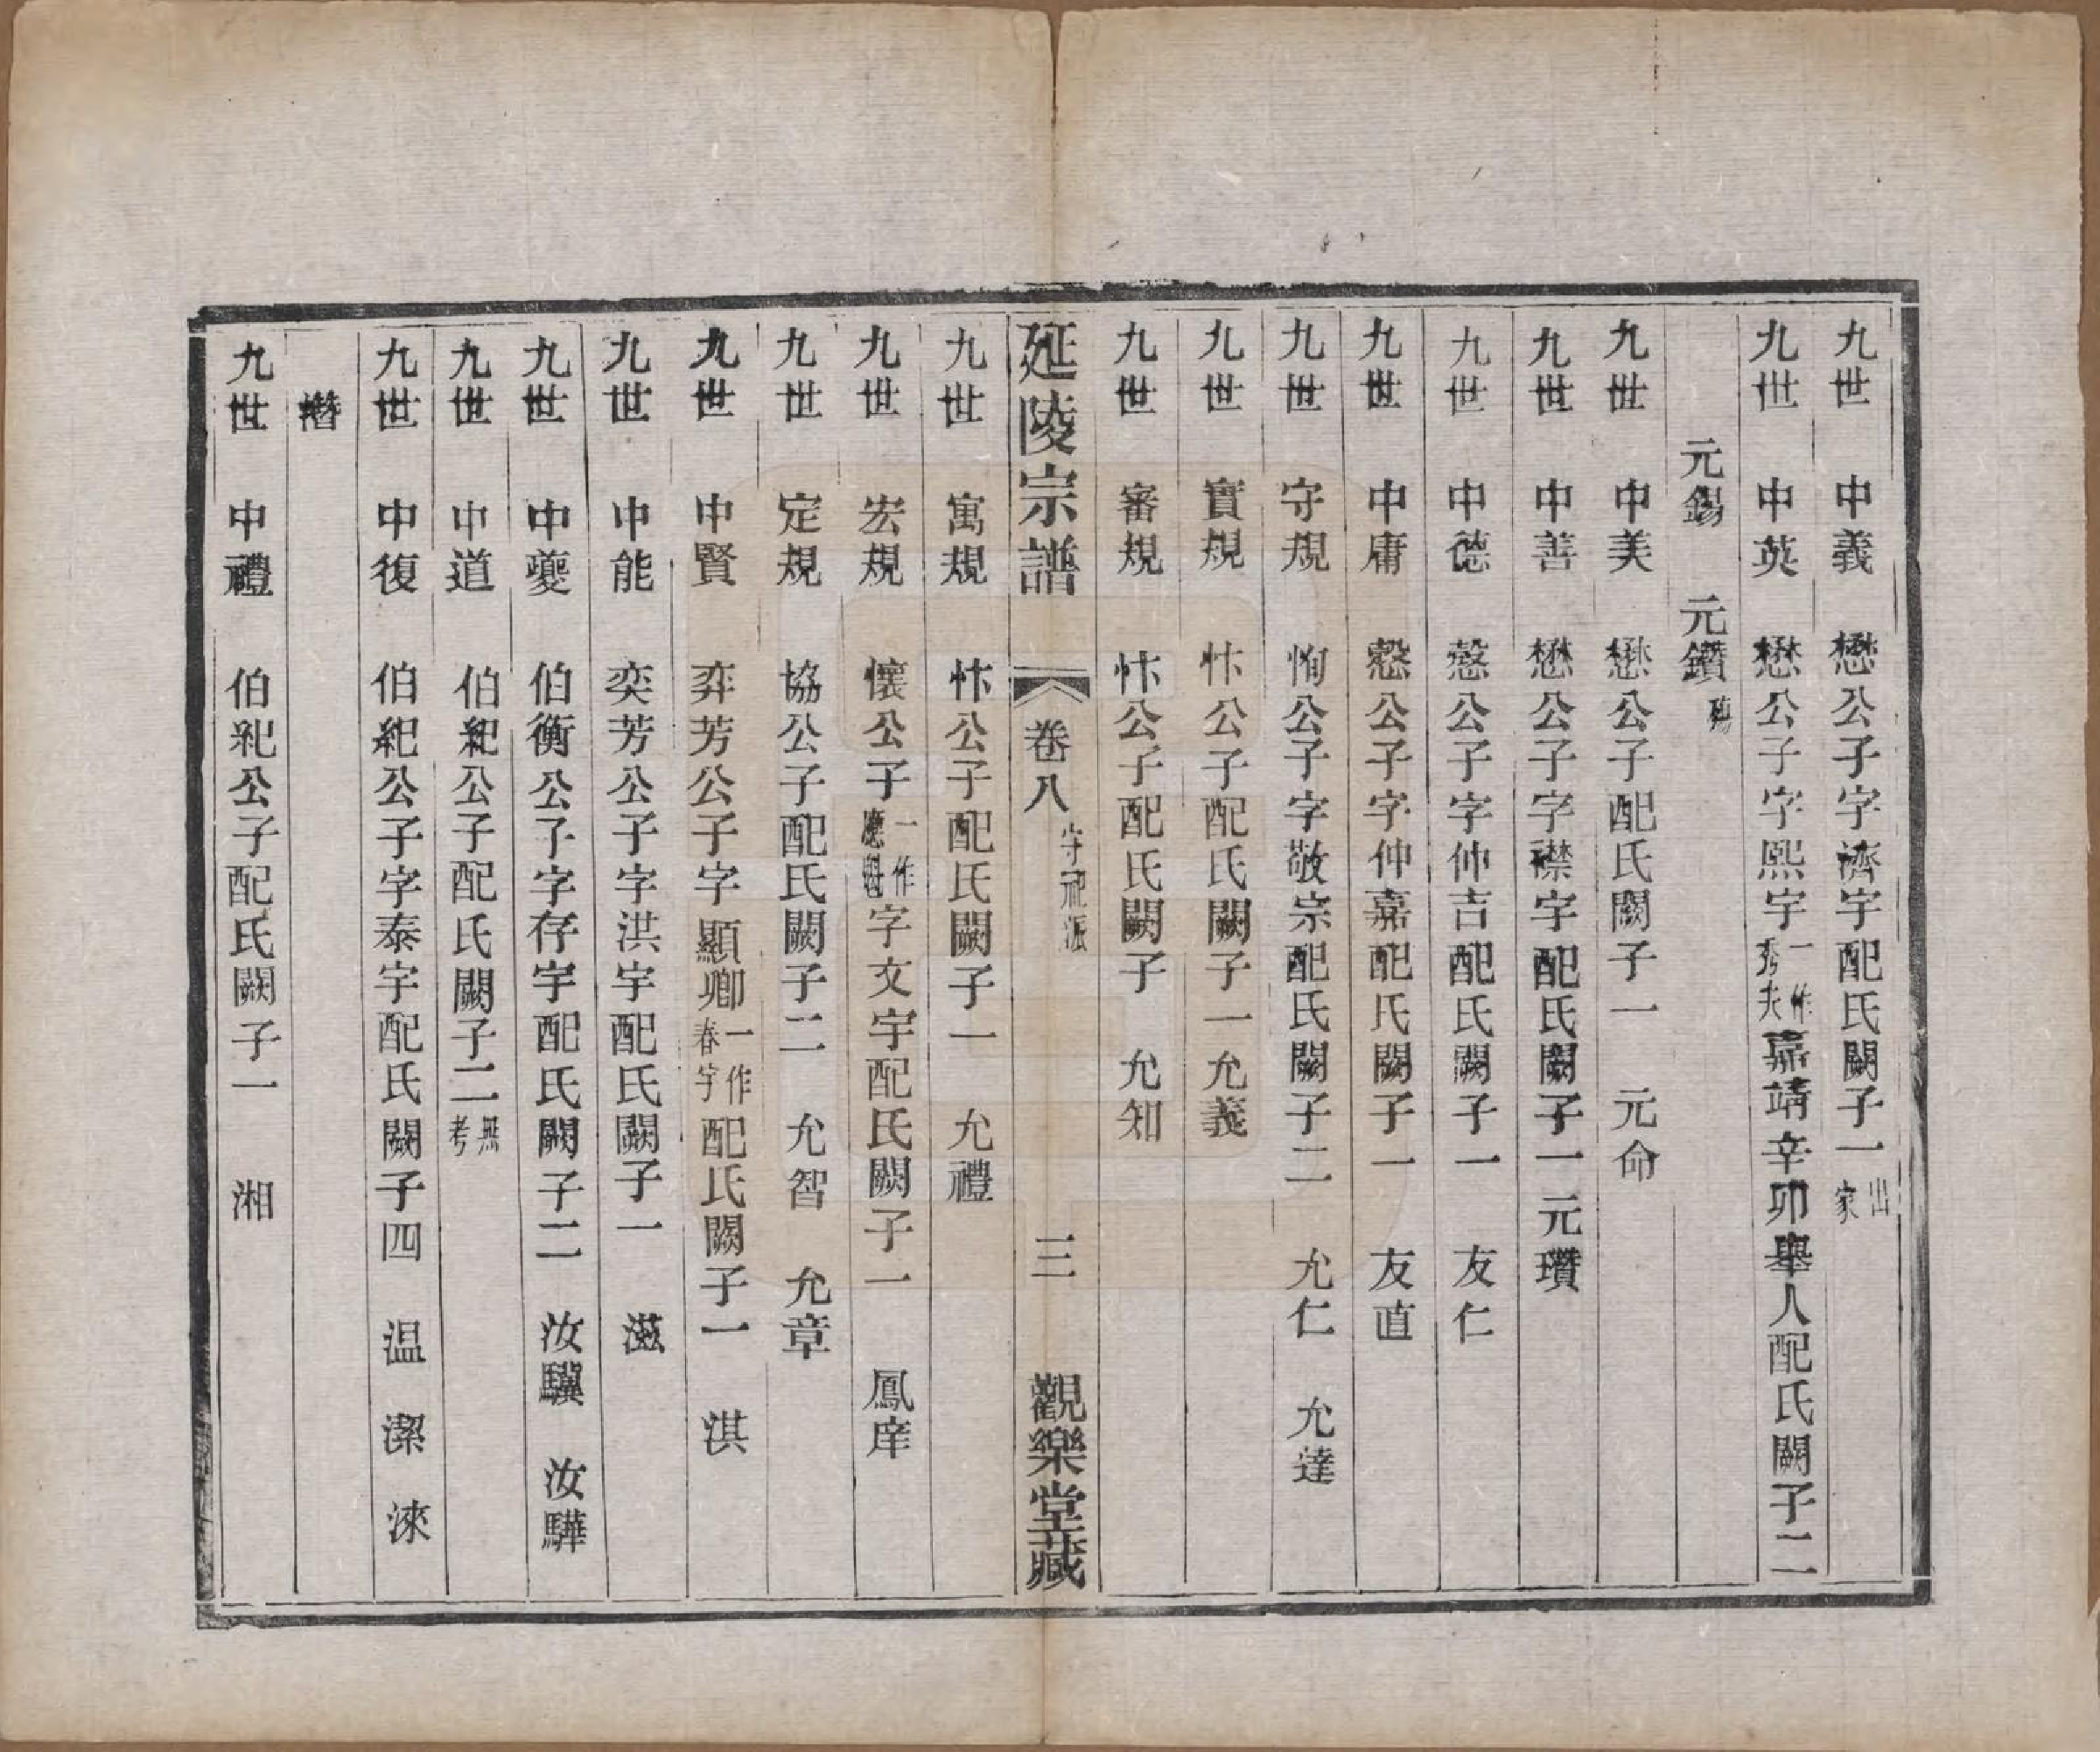 九世 中義 懋公子字濟宇配氏闕子一出家
九世 中英 懋公子字熙宇一作秀夫嘉靖辛卯舉人配氏闕子二
元錫 元鑽
九世 中美 懋公子配氏闕子一 元命
九世 中善 懋公子字襟宇配氏闕子一元瓚
九世 中德 慤公子字仲吉配氏闕子一 友仁
九世 中庸 慤公子字仲嘉配氏闕子一 友直
九世 守規 恂公子字敬宗配氏闕子二 允仁 允達
九世 實規 忭公子配氏闕子一允義
九世 審規 忭公子配氏闕子 允知
延陵宗譜 卷八 守祀派 三 觀樂堂藏
九世 寓規 忭公子配氏闕子一 允禮
九世 宏規 懷公子一作應魁字文宇配氏闕子一 鳳庠
九世 定規 協公子配氏闕子二 允智 允章
九世 中賢 弈芳公子字顯卿一作春宇配氏闕子一 淇
九世 中能 奕芳公子字洪宇配氏闕子一 滋
九世 中夔 伯衡公子字存宇配氏闕子二 汝驥 汝驊
九世 中道 伯紀公子配氏闕子二無考
九世 中復 伯紀公子字泰宇配氏闕子四 温 潔 淶
濳
九世 中禮 伯紀公子配氏闕子一 湘